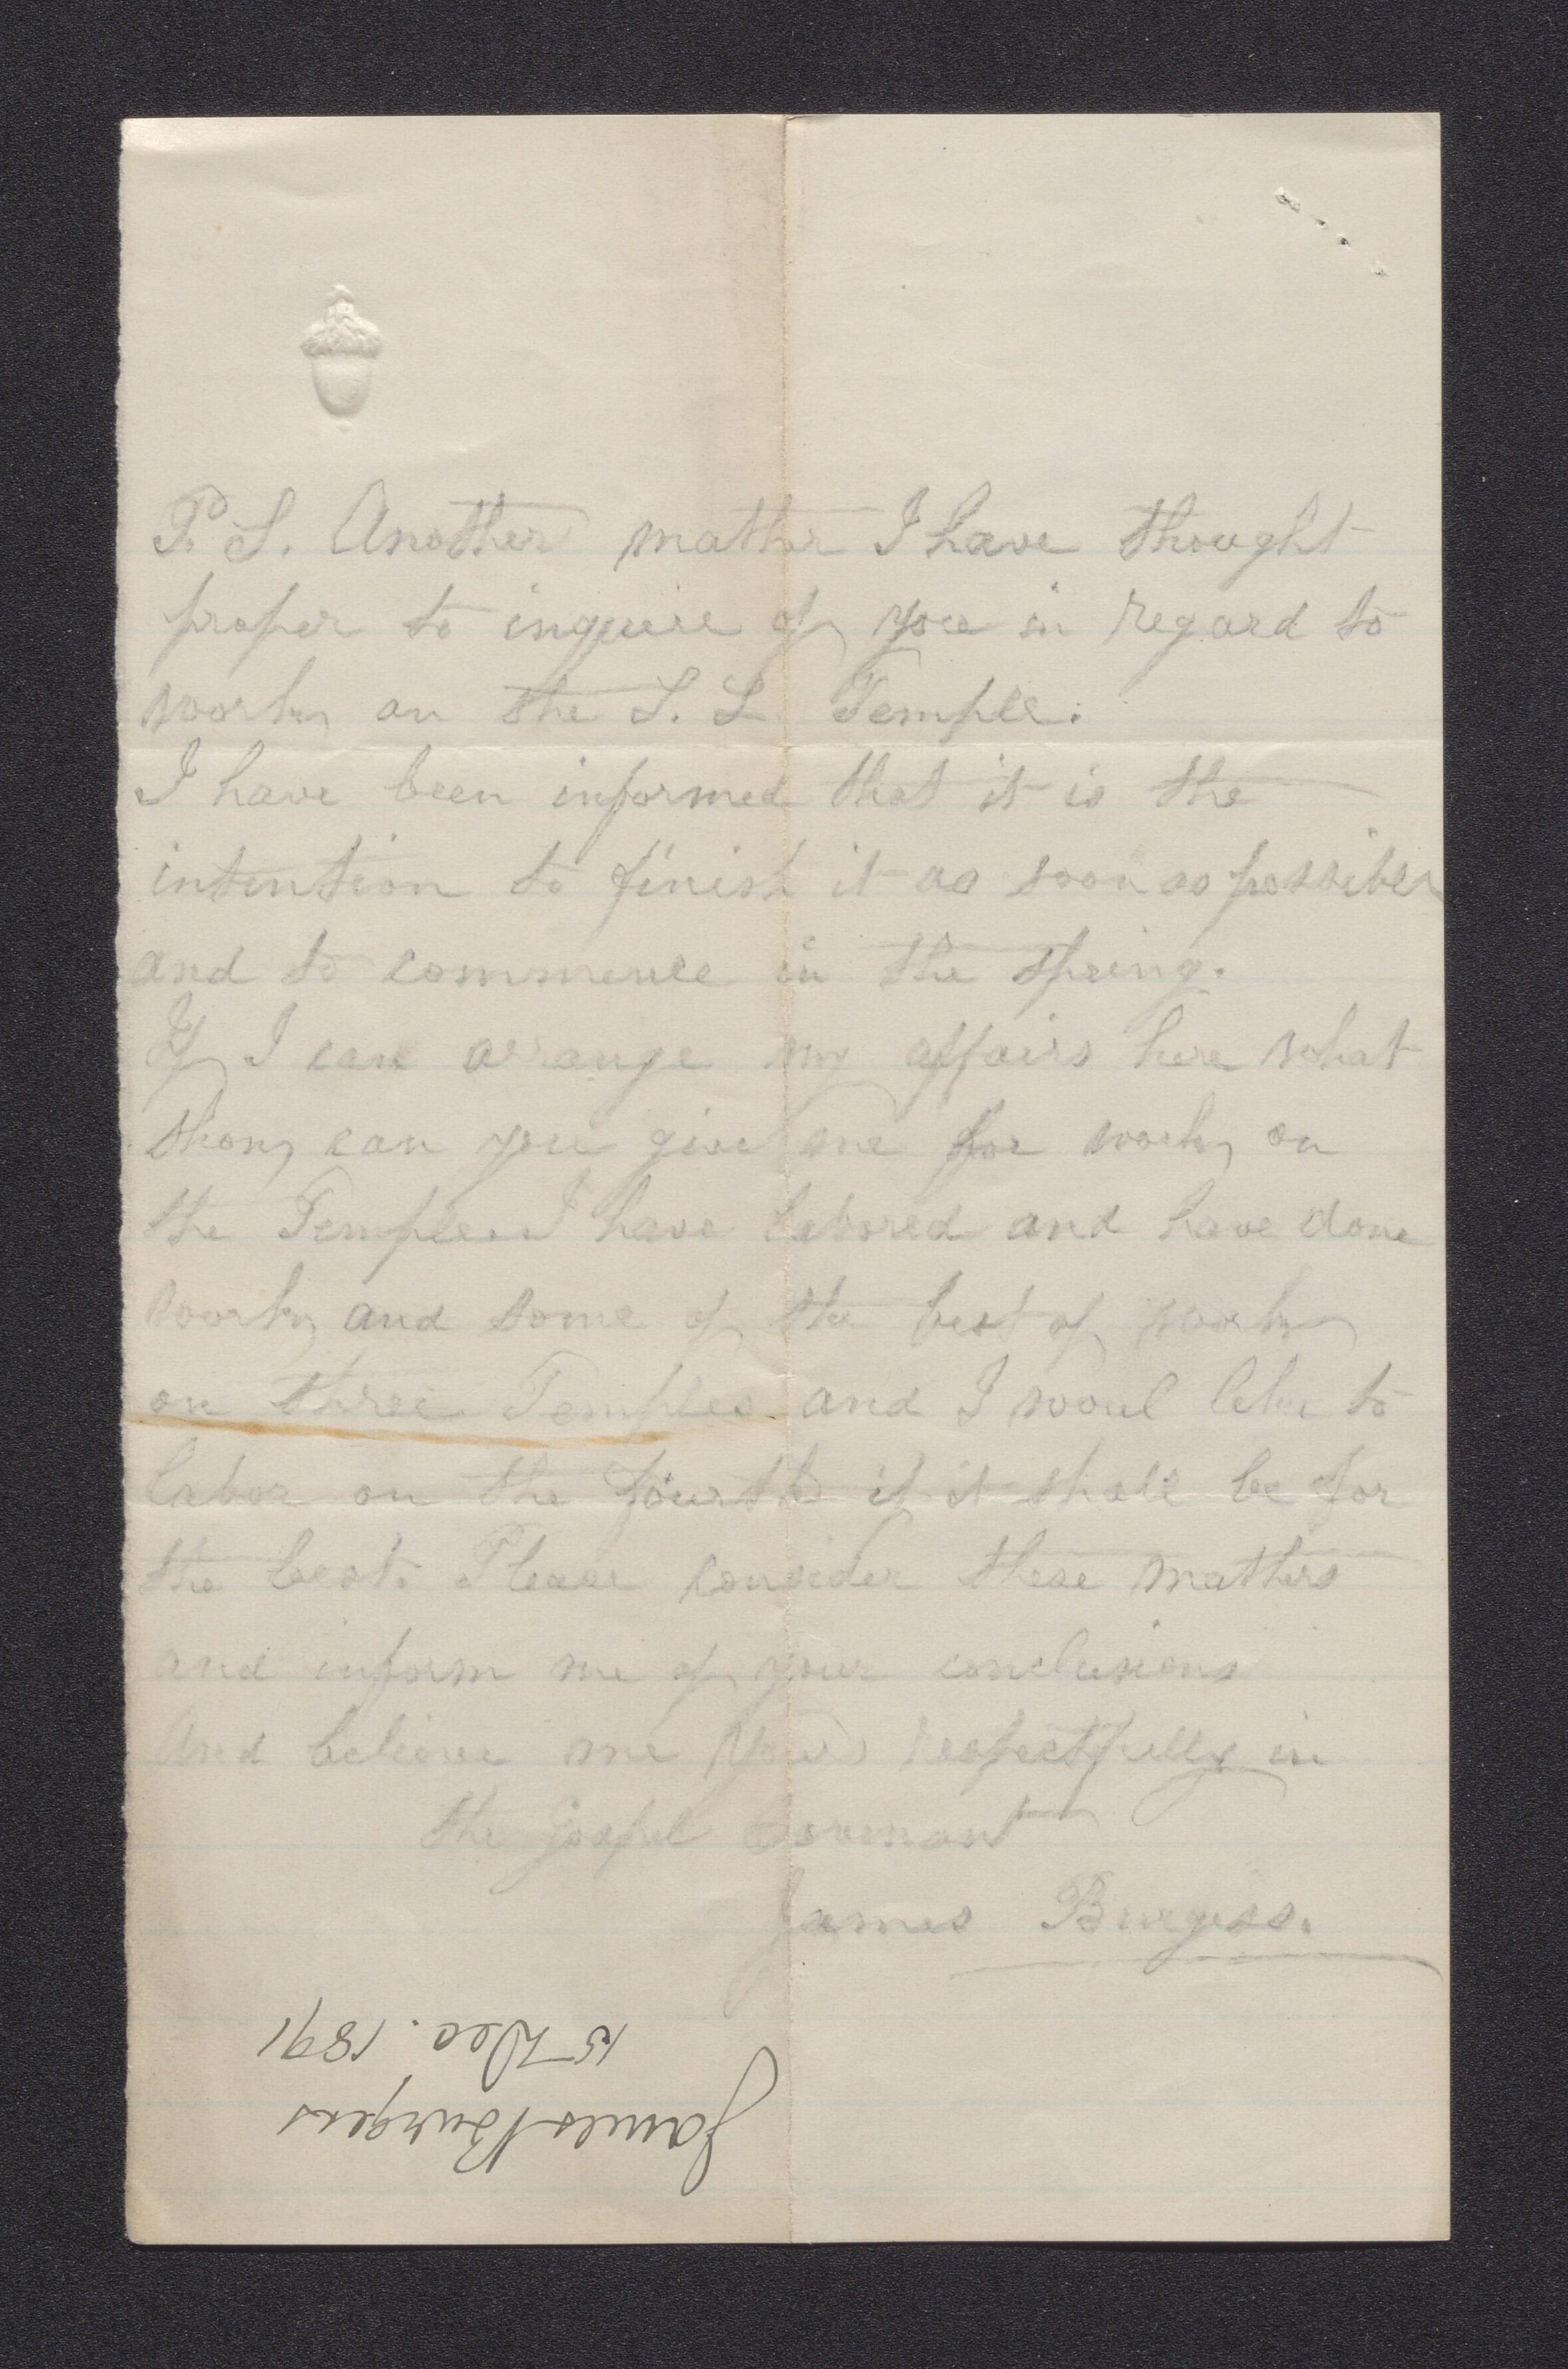 P. S. Another matter I have thought
proper to inquire of you in regard to
work on the S. L Temple.
I have been informed that it is the
intention to finish it as soon as possible
and to commence in the spring.
If I can arrange my affairs here what
show can you give me for work on
the Temple. I have labored and have done
work and some of the best of work
on three Temples and I woul like to
labor on the fourth if it shall be for
the best. Please consider these matters
and inform me of your conclusions
And believe me yours respectfully in
the Gospel Covenant
James Burgess.
James Burgess
15 Dec. 1891